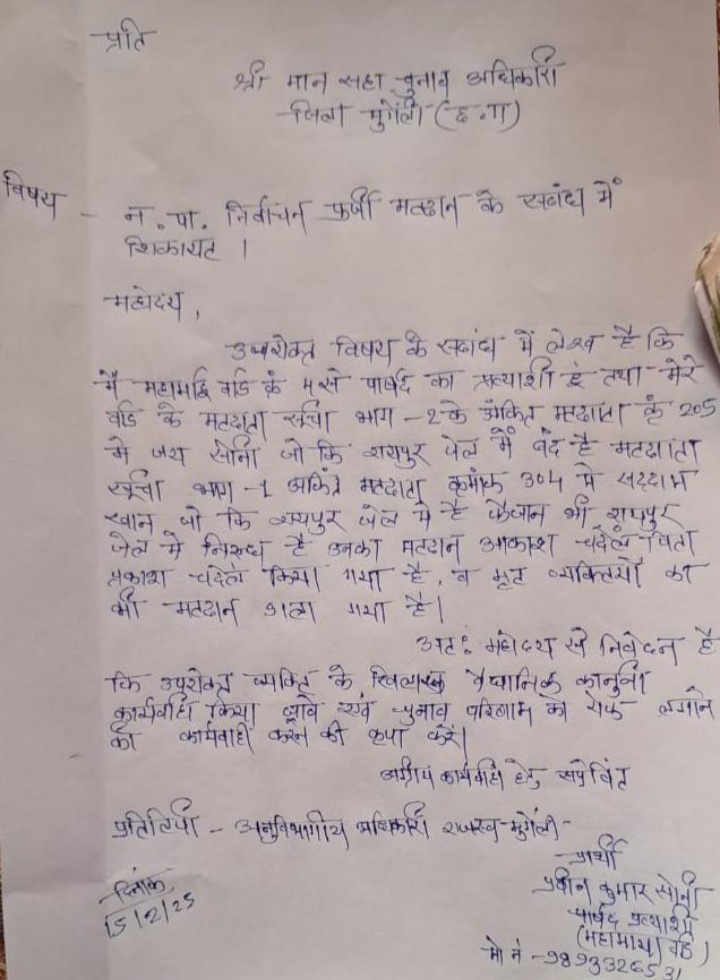 प्रति
श्री मान सहा चुनाव अधिकारी
जिला मुंगेली (छ.ग)
विषय - न.पा. निर्वाचन फर्जी मतदान के सबंध में
शिकायत ।
महोदय,
उपरोक्त विषय के सबंध में लेख है कि
मैं महामाई वार्ड क्रं 4 से पार्षद का प्रत्याशी हूं तथा मेरे
वार्ड के मतदाता सूची भाग -2 के अंकित मतदाता क्रं 205
मे जय सोनी जो कि रायपुर जेल में बंद है मतदाता
सूची भाग -1 अंकित मतदाता क्रमांक 304 मे सद्दाम
खान जो कि रायपुर जेल मे है फैजान भी रायपुर
जेल मे निरुध्द है उनका मतदान आकाश चंदेल पिता
प्रकाश चंदेल किया गया है, व मृत व्यक्तियों का
भी मतदान डाला गया है।
अतः महोदय से निवेदन है
कि उपरोक्त व्यक्ति के खिलाफ वैधानिक कानुनी
कार्यवाही किया जावे एवं चुनाव परिणाम को रोक लगाने
की कार्यवाही करने की कृपा करें।
अग्रीम कार्यवाही हेतु संप्रेषित
प्रतिलिपी - अनुविभागीय अधिकारी राजस्व मुंगेली
प्रार्थी
प्रवीन कुमार सोनी
पार्षद प्रत्याशी
(महामाया वार्ड)
मो नं -989332653
दिनांक
15/2/25